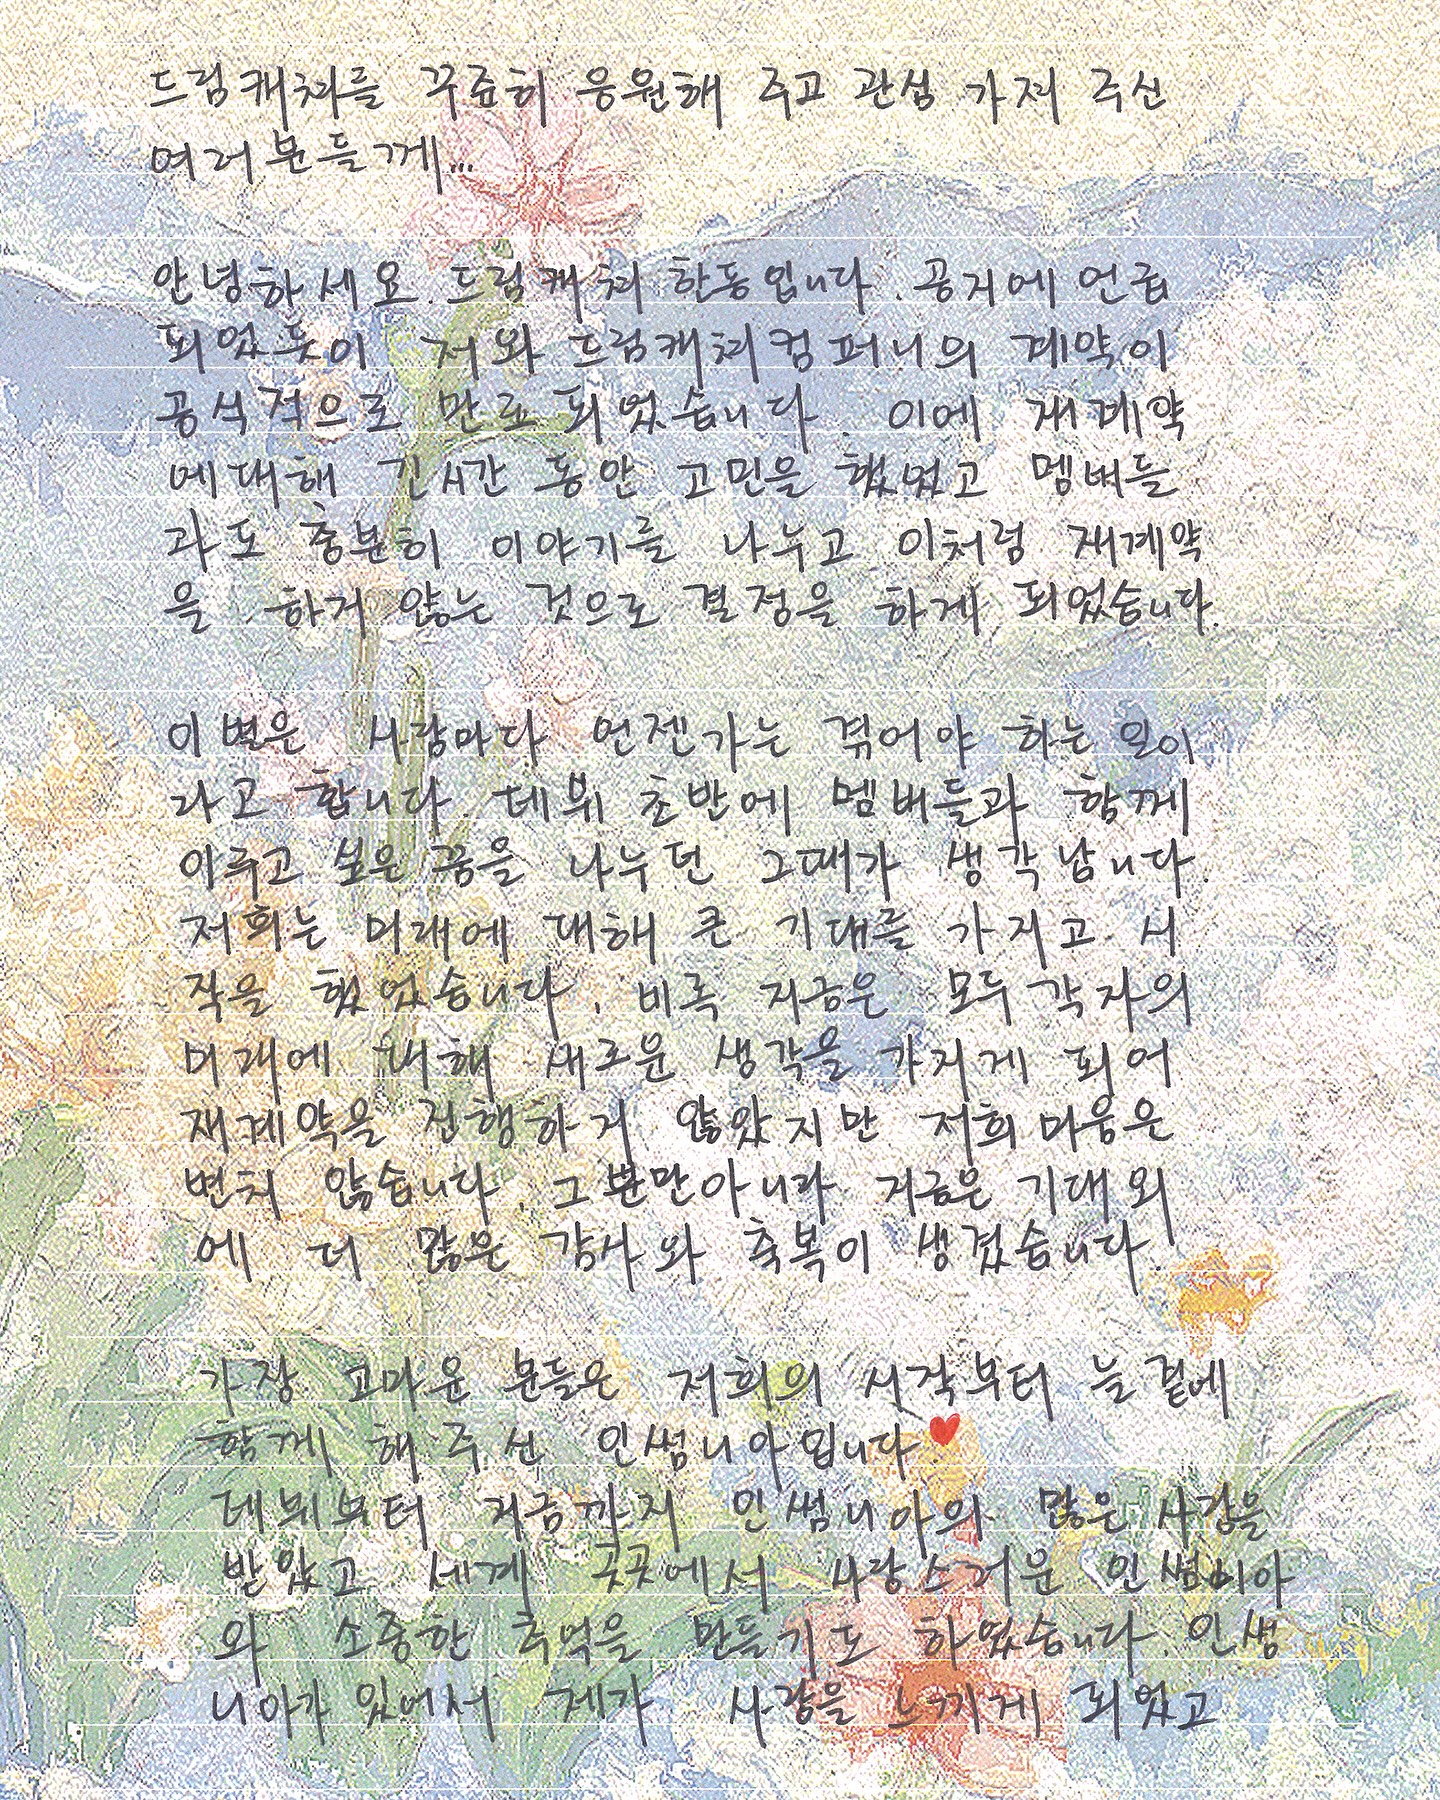 드림캐쳐를 꾸준히 응원해 주고 관심 가져 주신
여러분들께...
안녕하세요. 드림캐쳐 한동입니다. 공지에 언급
되었듯이 저와 드림캐쳐컴퍼니의 계약이
공식적으로 만료 되었습니다. 이에 재계약
에 대해 긴 시간 동안 고민을 했었고 멤버들
과도 충분히 이야기를 나누고 이처럼 재계약
을 하지 않는 것으로 결정을 하게 되었습니다.
이별은 사람마다 언젠가는 겪어야 하는 일이
라고 합니다. 데뷔 초반에 멤버들과 함께
이루고 싶은 꿈을 나누던 그때가 생각납니다.
저희는 미래에 대해 큰 기대를 가지고 시
작을 했었습니다. 비록 지금은 모두 각자의
미래에 대해 새로운 생각을 가지게 되어
재계약을 진행하지 않았지만 저희 마음은
변치 않습니다. 그뿐만아니라 지금은 기대 외
에 더 많은 감사와 축복이 생겼습니다.
가장 고마운 분들은 저희의 시작부터 늘 곁에
함께 해 주신 인썸니아입니다.❤
데뷔부터 지금까지 인썸니아의 많은 사랑을
받았고 세계 곳곳에서 사랑스러운 인썸니아
와 소중한 추억을 만들기도 하였습니다. 인썸
니아가 있어서 제가 사랑을 느끼게 되었고